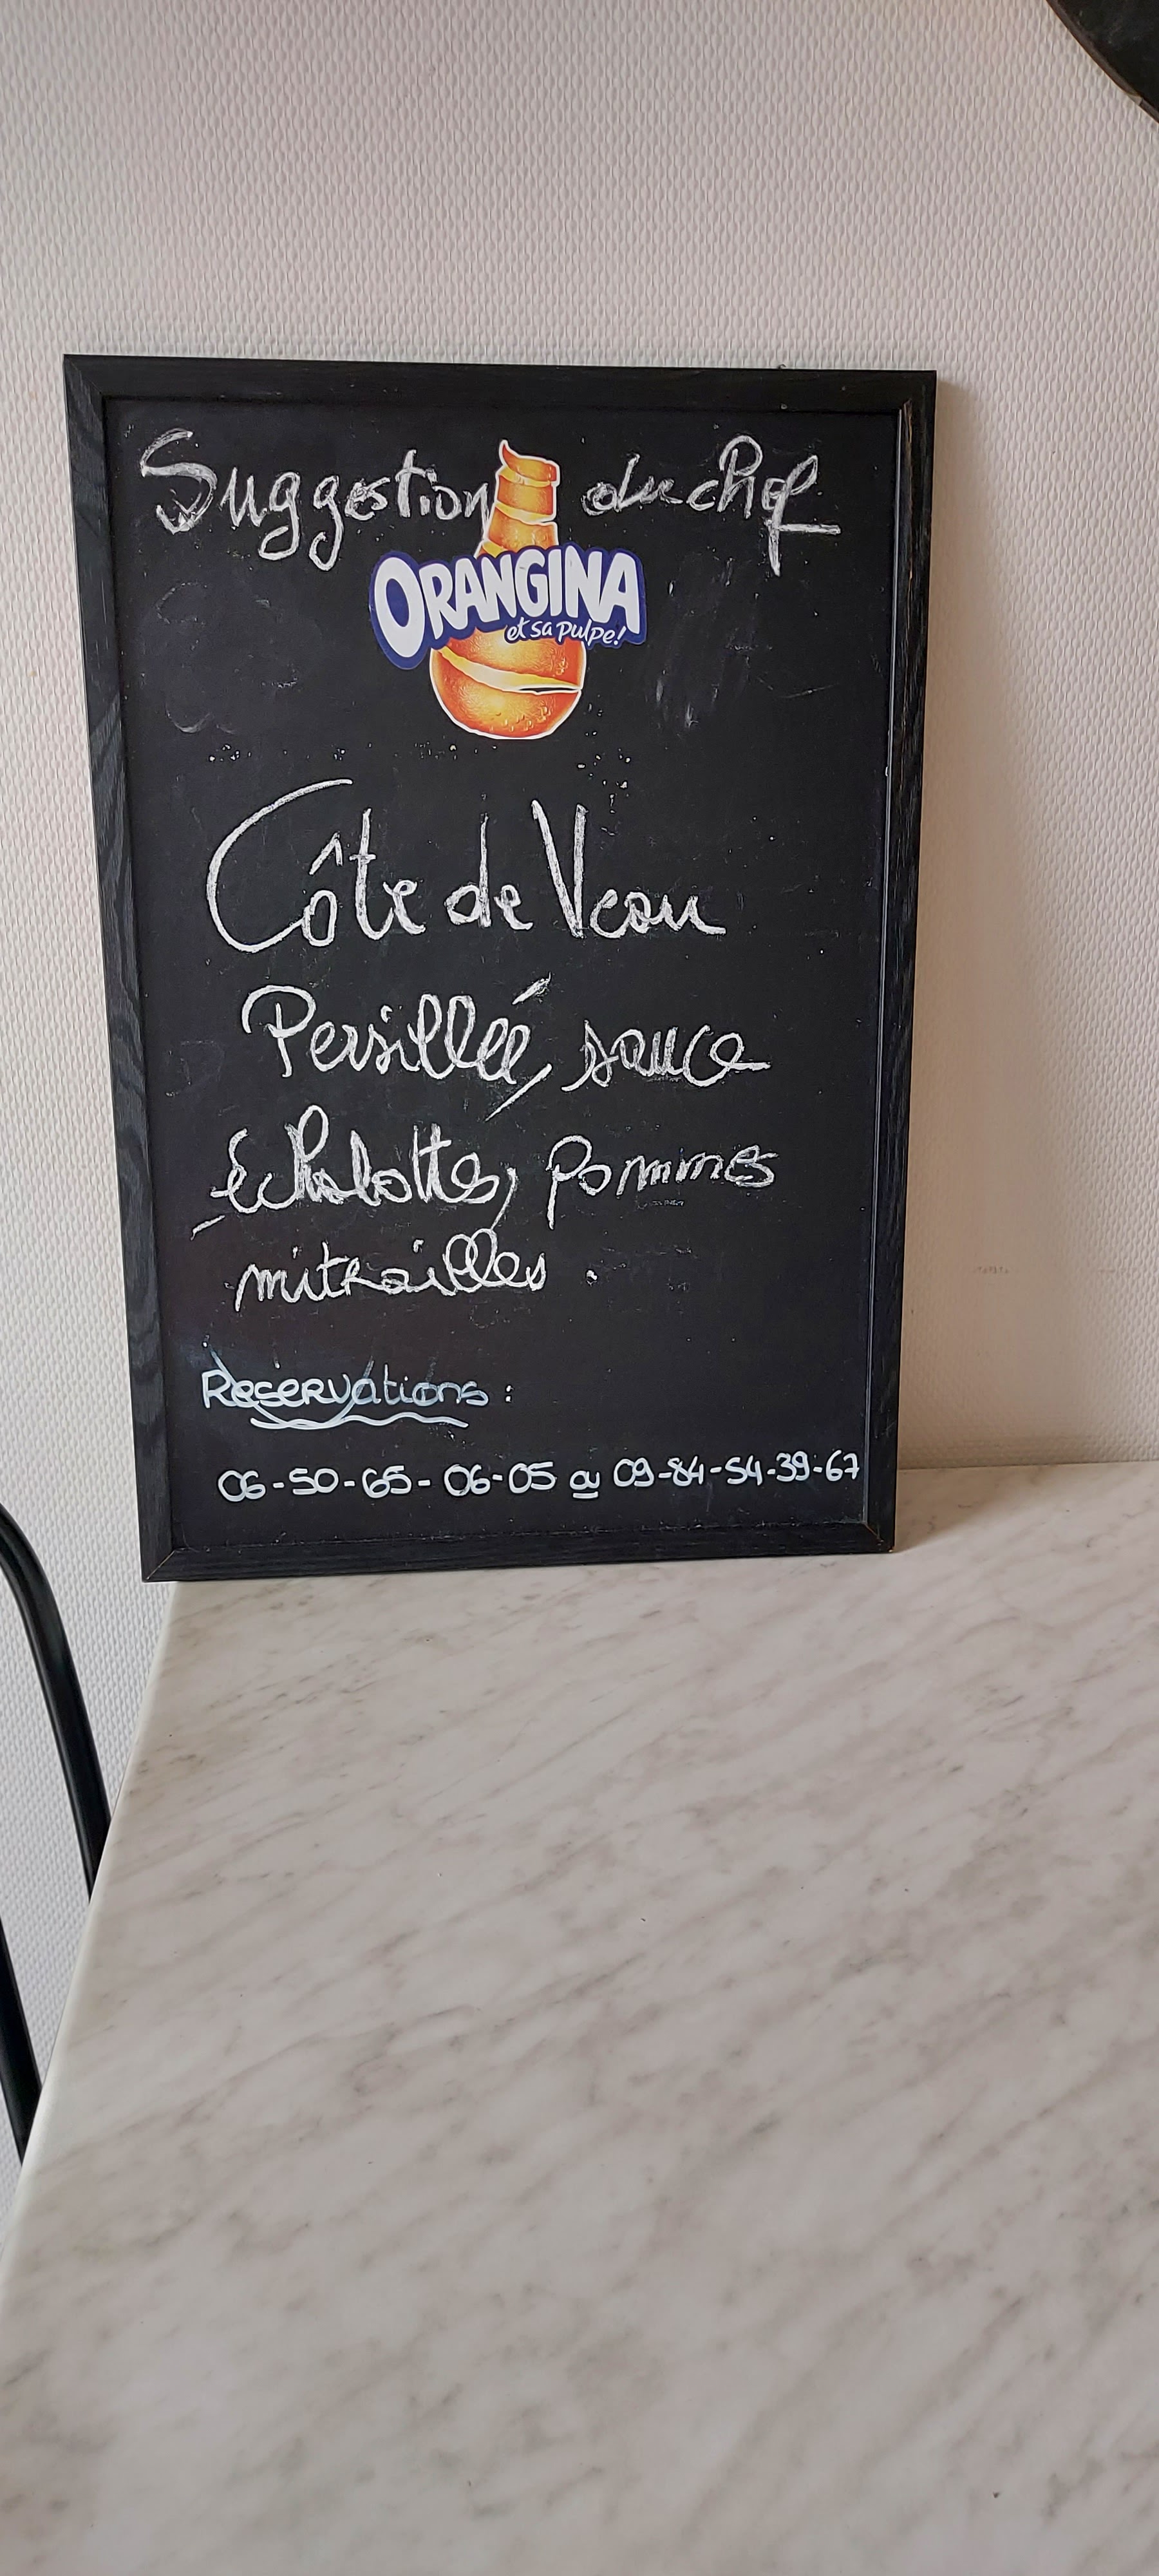 Suggestion du chef
ORANGINA
et sa pulpe!
Côte de Veau
Persillée, sauce
échalottes, pommes
mitrailles.
Réservations :
06-50-65-06-05 ou 09-84-54-39-67